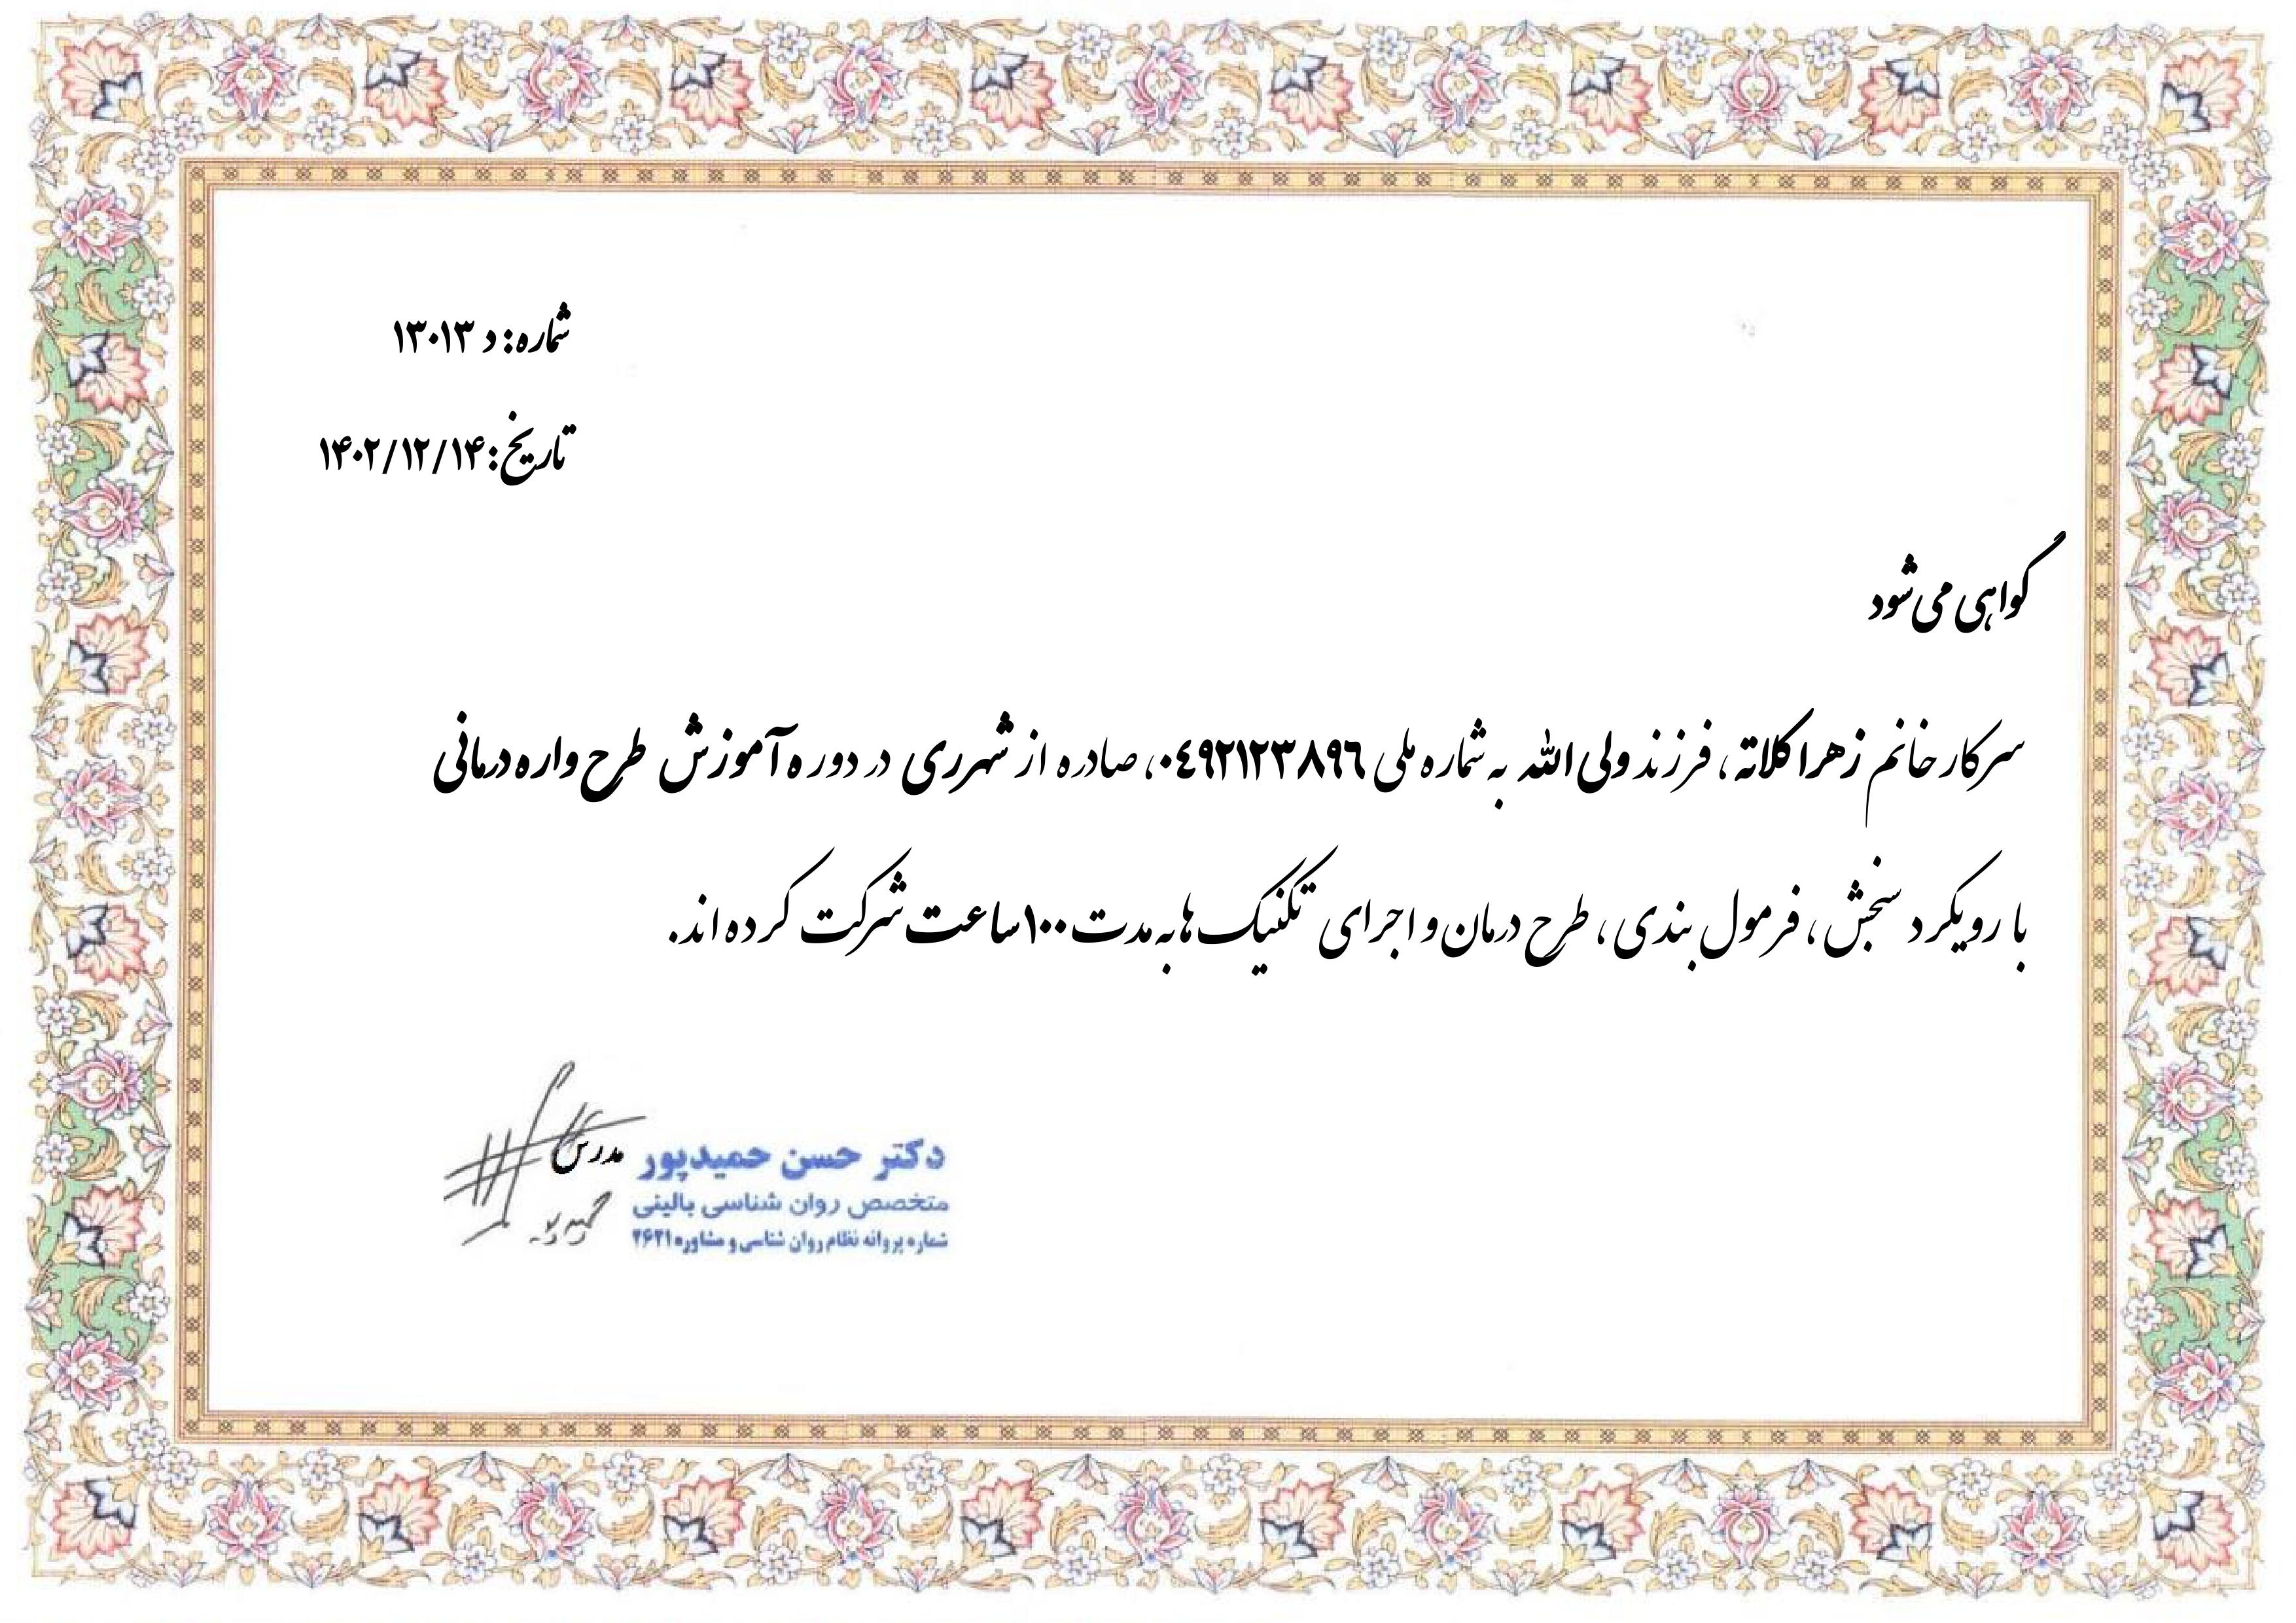 شماره: د ۱۳۰۱۳
تاریخ: ۱۴۰۲/۱۲/۱۴
گواهی می‌شود
سرکار خانم زهرا کلاته، فرزند ولی الله به شماره ملی ۰٤۹۲۱۲۳۸۹٦، صادره از شهرری در دوره آموزش طرح واره درمانی
با رویکرد سنجش، فرمول بندی، طرح درمان و اجرای تکنیک ها به مدت ۱۰۰ ساعت شرکت کرده اند.
دکتر حسن حمیدپور مدرس
متخصص روان شناسی بالینی
حمیدپور
شماره پروانه نظام روان شناسی و مشاوره ۲۶۲۱